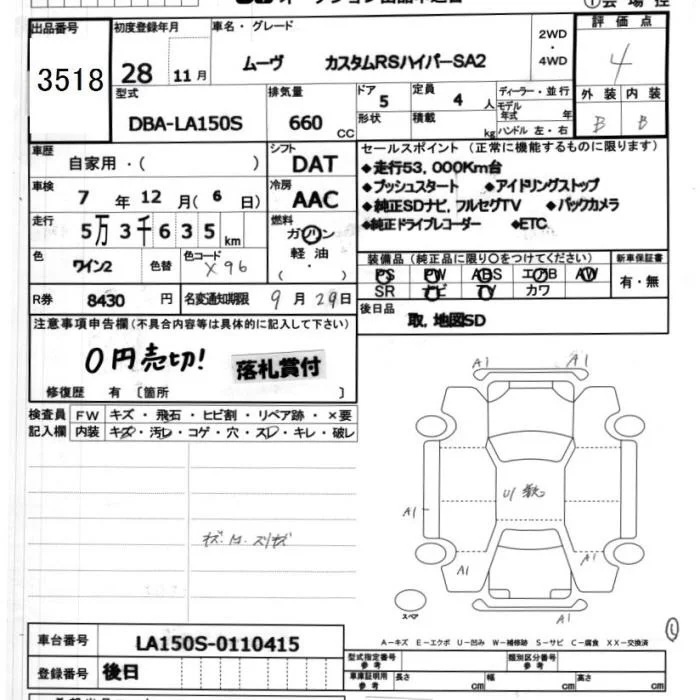 出品番号 初度登録年月 車名・グレード 2WD・4WD 評価点
3518 28 11月 ムーヴ カスタムRSハイパーSA2 4
型式 排気量 ドア 5 定員 4 人 ディーラー・並行 外装 内装
DBA-LA150S 660 CC 形状 積載 kg モデル年式 年 B B
ハンドル 左・右
車歴 自家用・( ) シフト DAT セールスポイント(正常に機能するものに限ります)
◆走行53,000Km台
車検 7 年 12 月( 6 日) 冷房 AAC ◆プッシュスタート ◆アイドリングストップ
◆純正SDナビ,フルセグTV ◆バックカメラ
走行 5万3千635 km 燃料 ガソリン ◆純正ドライブレコーダー ◆ETC
軽油
色 ワイン2 色替 色コード X96 装備品(純正品に限り○をつけてください) 新車保証書
PS PW ABS エアB AW 有・無
SR ナビ TV カワ
R券 8430 円 名変通知期限 9 月 29 日 後日品
取,地図SD
注意事項申告欄(不具合内容等は具体的に記入して下さい)
0円売切! 落札賞付
修復歴 有 〔箇所 〕
検査員 FW キズ・飛石・ヒビ割・リペア跡・×要
記入欄 内装 キズ・汚レ・コゲ・穴・スレ・キレ・破レ
A1 A1
U1
A1
A1 A1
スペア A1
A-キズ E-エクボ U-凹み W-補修跡 S-サビ C-腐食 XX-交換済
車台番号 LA150S-0110415
型式指定番号 参考 類別区分番号 参考
登録番号 後日 車庫証明用 参考 長さ cm 幅 cm 高さ cm